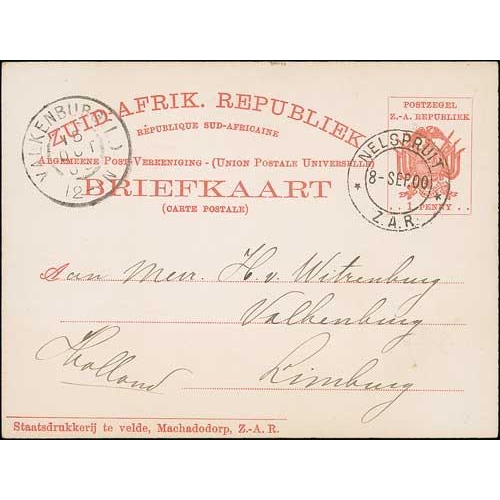 ZUID-AFRIK. REPUBLIEK
RÉPUBLIQUE SUD-AFRICAINE
ALGEMEENE POST-VEREENIGING - (UNION POSTALE UNIVERSELLE)
BRIEFKAART
(CARTE POSTALE)
POSTZEGEL
Z.-A. REPUBLIEK
1 PENNY
NELSPRUIT
8-SEP.00
Z.A.R.
VALKENBURG
12
Aan Mevr. H. v. Witzenburg
Valkenburg
Holland Limburg
Staatsdrukkerij te velde, Machadodorp, Z.-A. R.